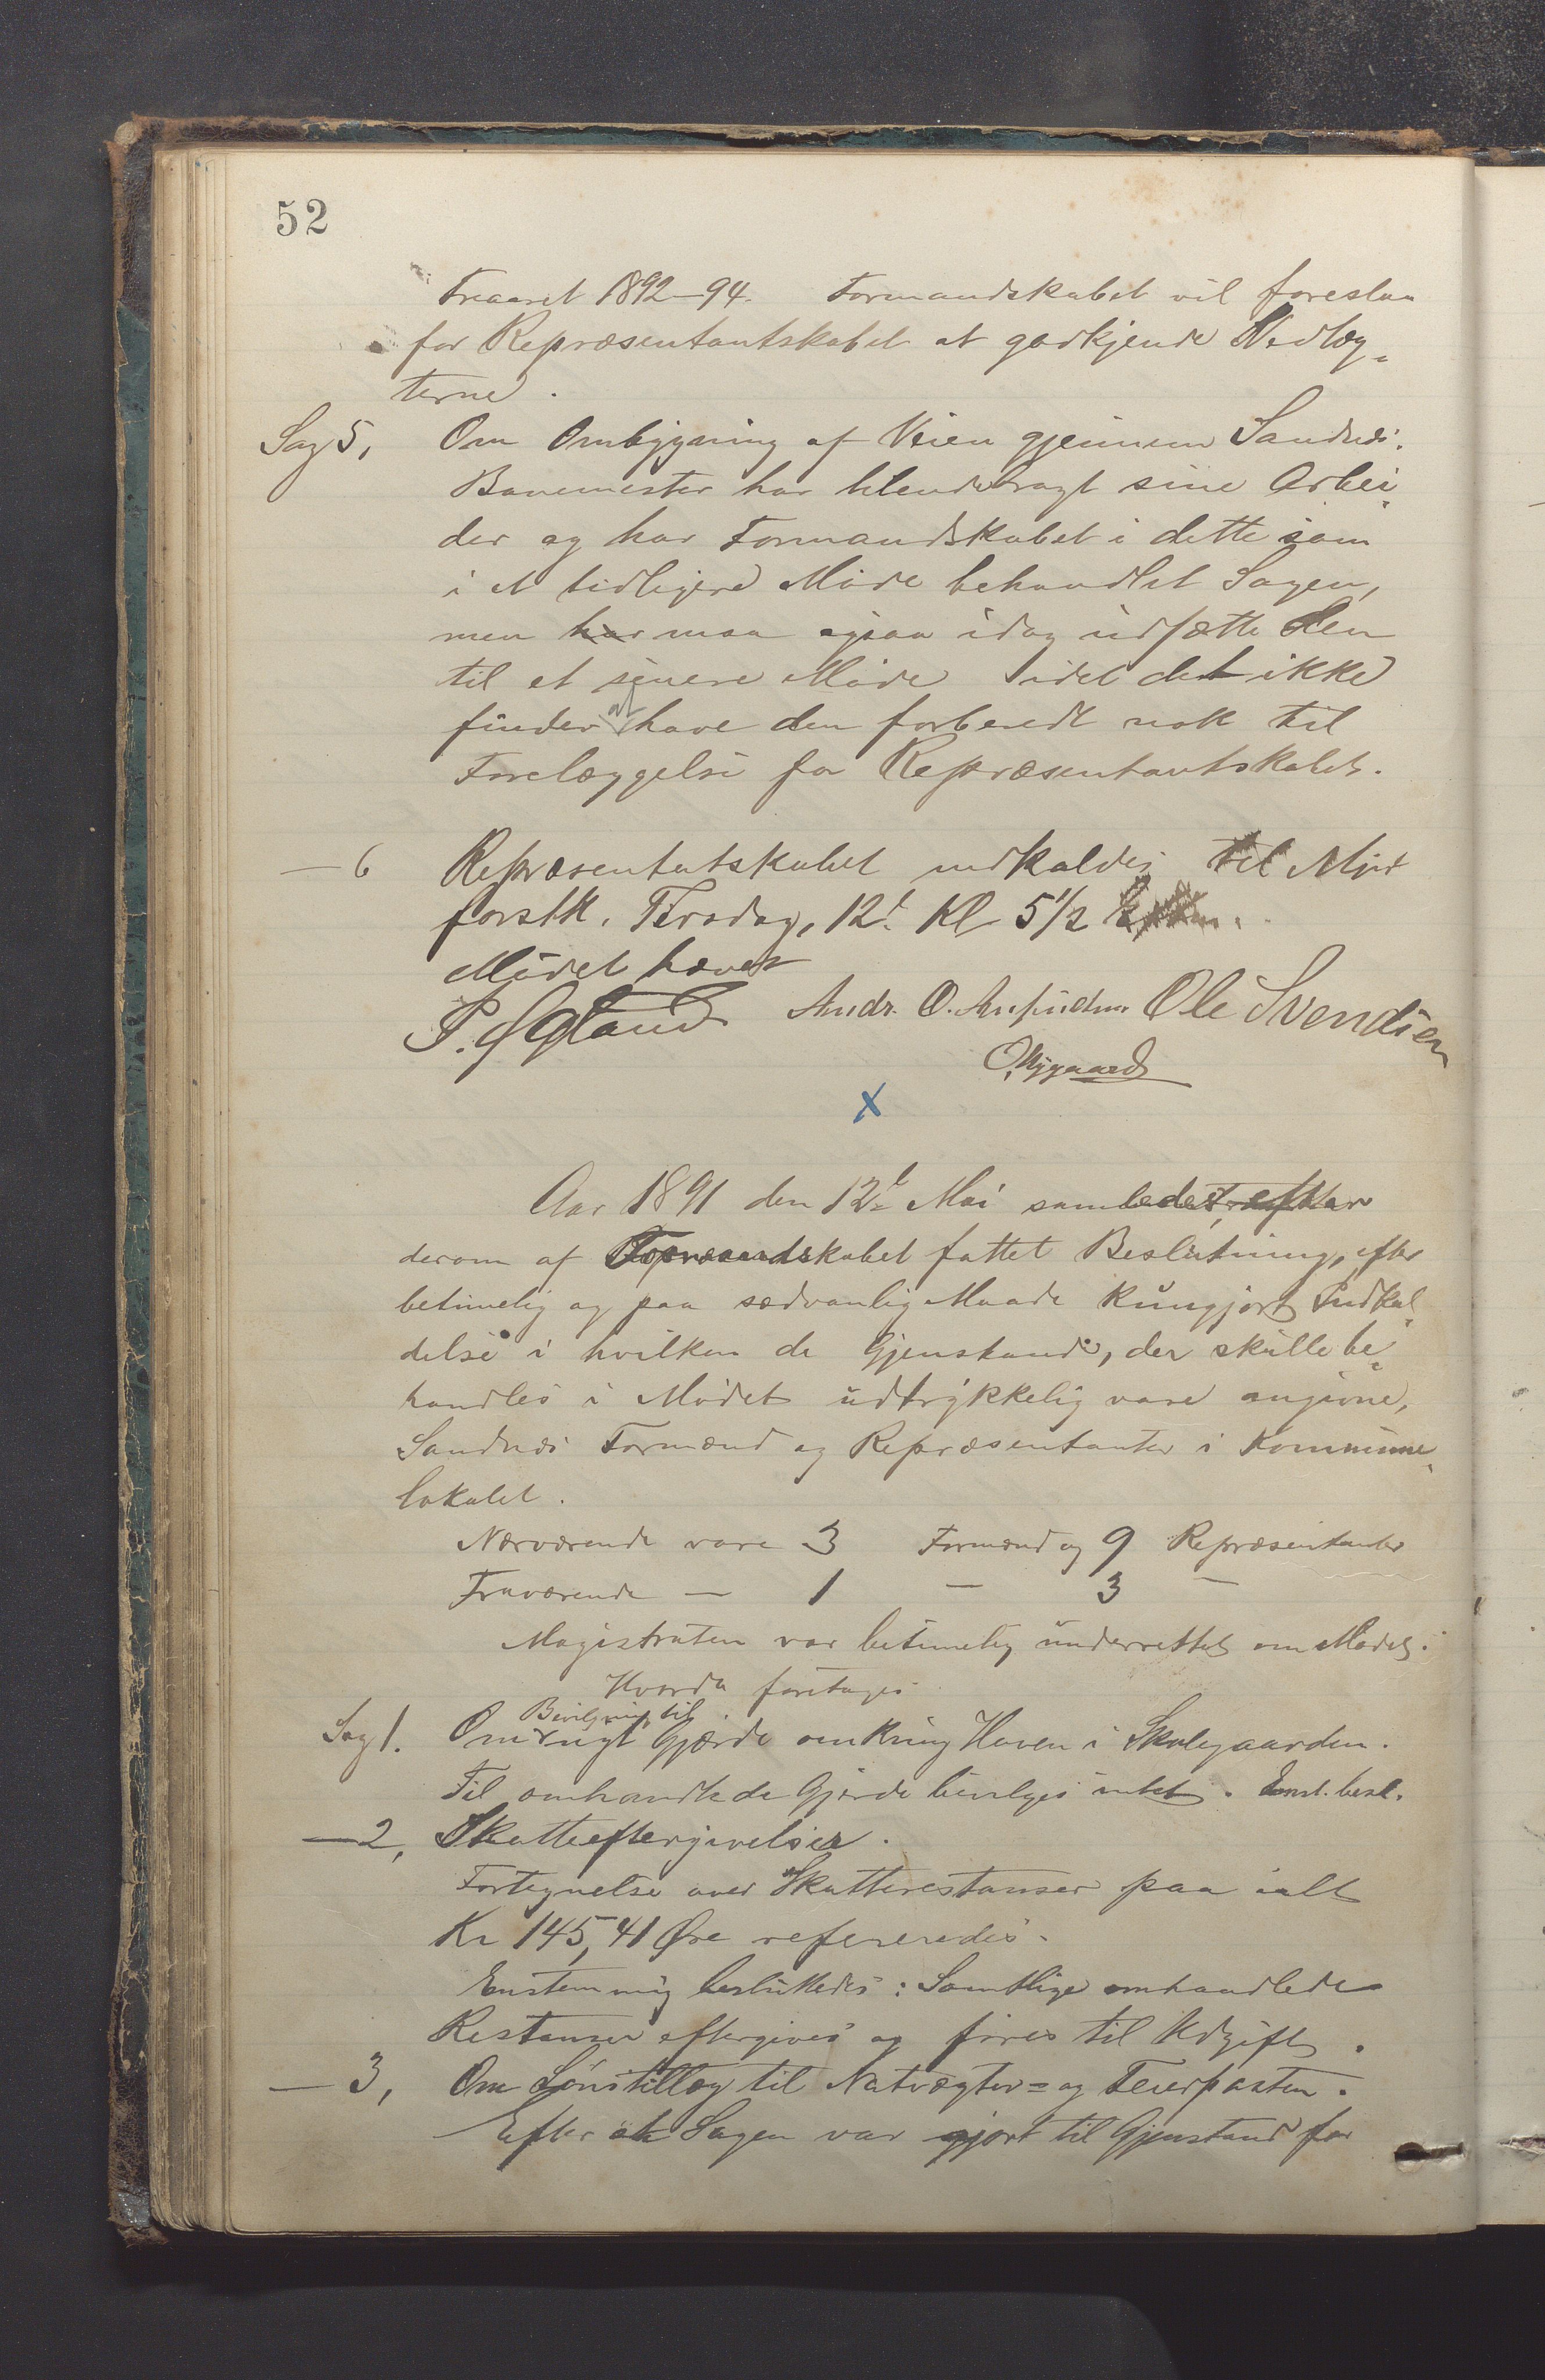 52
Treaaret 1892–94. Formandskabet vil foreslaa
for Repræsentantskabet at godkjende Vedtæg„
terne.
Sag 5, Om Ombygning af Veien gjennem Sandnæs.
Banemester har tilendebragt sine Arbei„
der og har Formandskabet i dette som
i et tidligere Møde behandlet Sagen,
men har maa ogsaa idag udsætte den
til et senere Møde idet det ikke
finder at have den forberedt nok til
Forelæggelse for Repræsentantskabet.
— 6 Repræsentatskabet indkaldes til Møde
forstk. Tirsdag, 12t Kl 5 1/2
Mødet hævet
Andr. O. Ole Svendsen
O. Nygaard
x
Aar 1891 den 12te Mai samledes, efter
derom af Formandskabet fattet Beslutning, efter
betimelig og paa sædvanlig Maade kungjort Indkal„
delse i hvilken de Gjenstande, der skulle be„
handles i Mødet udtrykkelig vare angivne,
Sandnæs Formænd og Repræsentanter i Kommune„
lokalet.
Nærværende vare 3 Formænd og 9 Repræsentanter
Fraværende — 1 — 3 —
Magistraten var betimelig underrettet om Mødet.
Hvorda foretages
Sag 1. Om Bevilgning til nyt Gjærde omkring Haven i Skolegaarden.
Til omhandlede Gjerde bevilges intet. Enst. besl.
— 2, Skatteeftergivelser.
Fortegnelse over Skatterestanser paa ialt
Kr 145,41 Øre refereredes.
Enstemmig besluttedes: Samtlige omhandlede
Restanser eftergives og føres til Udgift.
— 3, Om Lønstillæg til Natvægter= og Feierposten.
Efter at Sagen var gjort til Gjenstand for